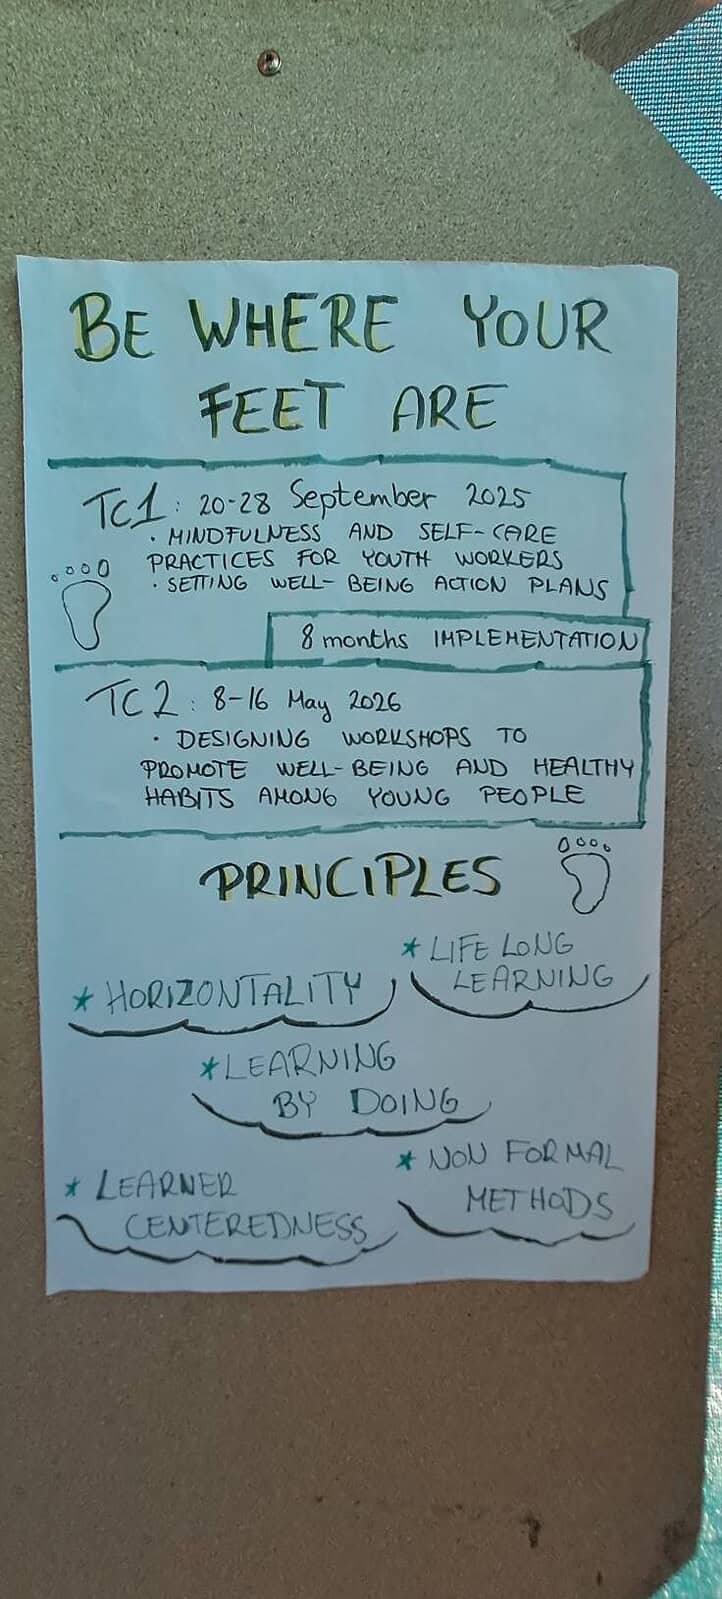 BE WHERE YOUR
FEET ARE
TC1: 20-28 September 2025
· MINDFULNESS AND SELF-CARE
PRACTICES FOR YOUTH WORKERS
· SETTING WELL-BEING ACTION PLANS
8 months IMPLEMENTATION
TC2: 8-16 May 2026
· DESIGNING WORKSHOPS TO
PROMOTE WELL-BEING AND HEALTHY
HABITS AMONG YOUNG PEOPLE
PRINCIPLES
* LIFE LONG
LEARNING
* HORIZONTALITY
* LEARNING
BY DOING
* NON FORMAL
METHODS
* LEARNER
CENTEREDNESS